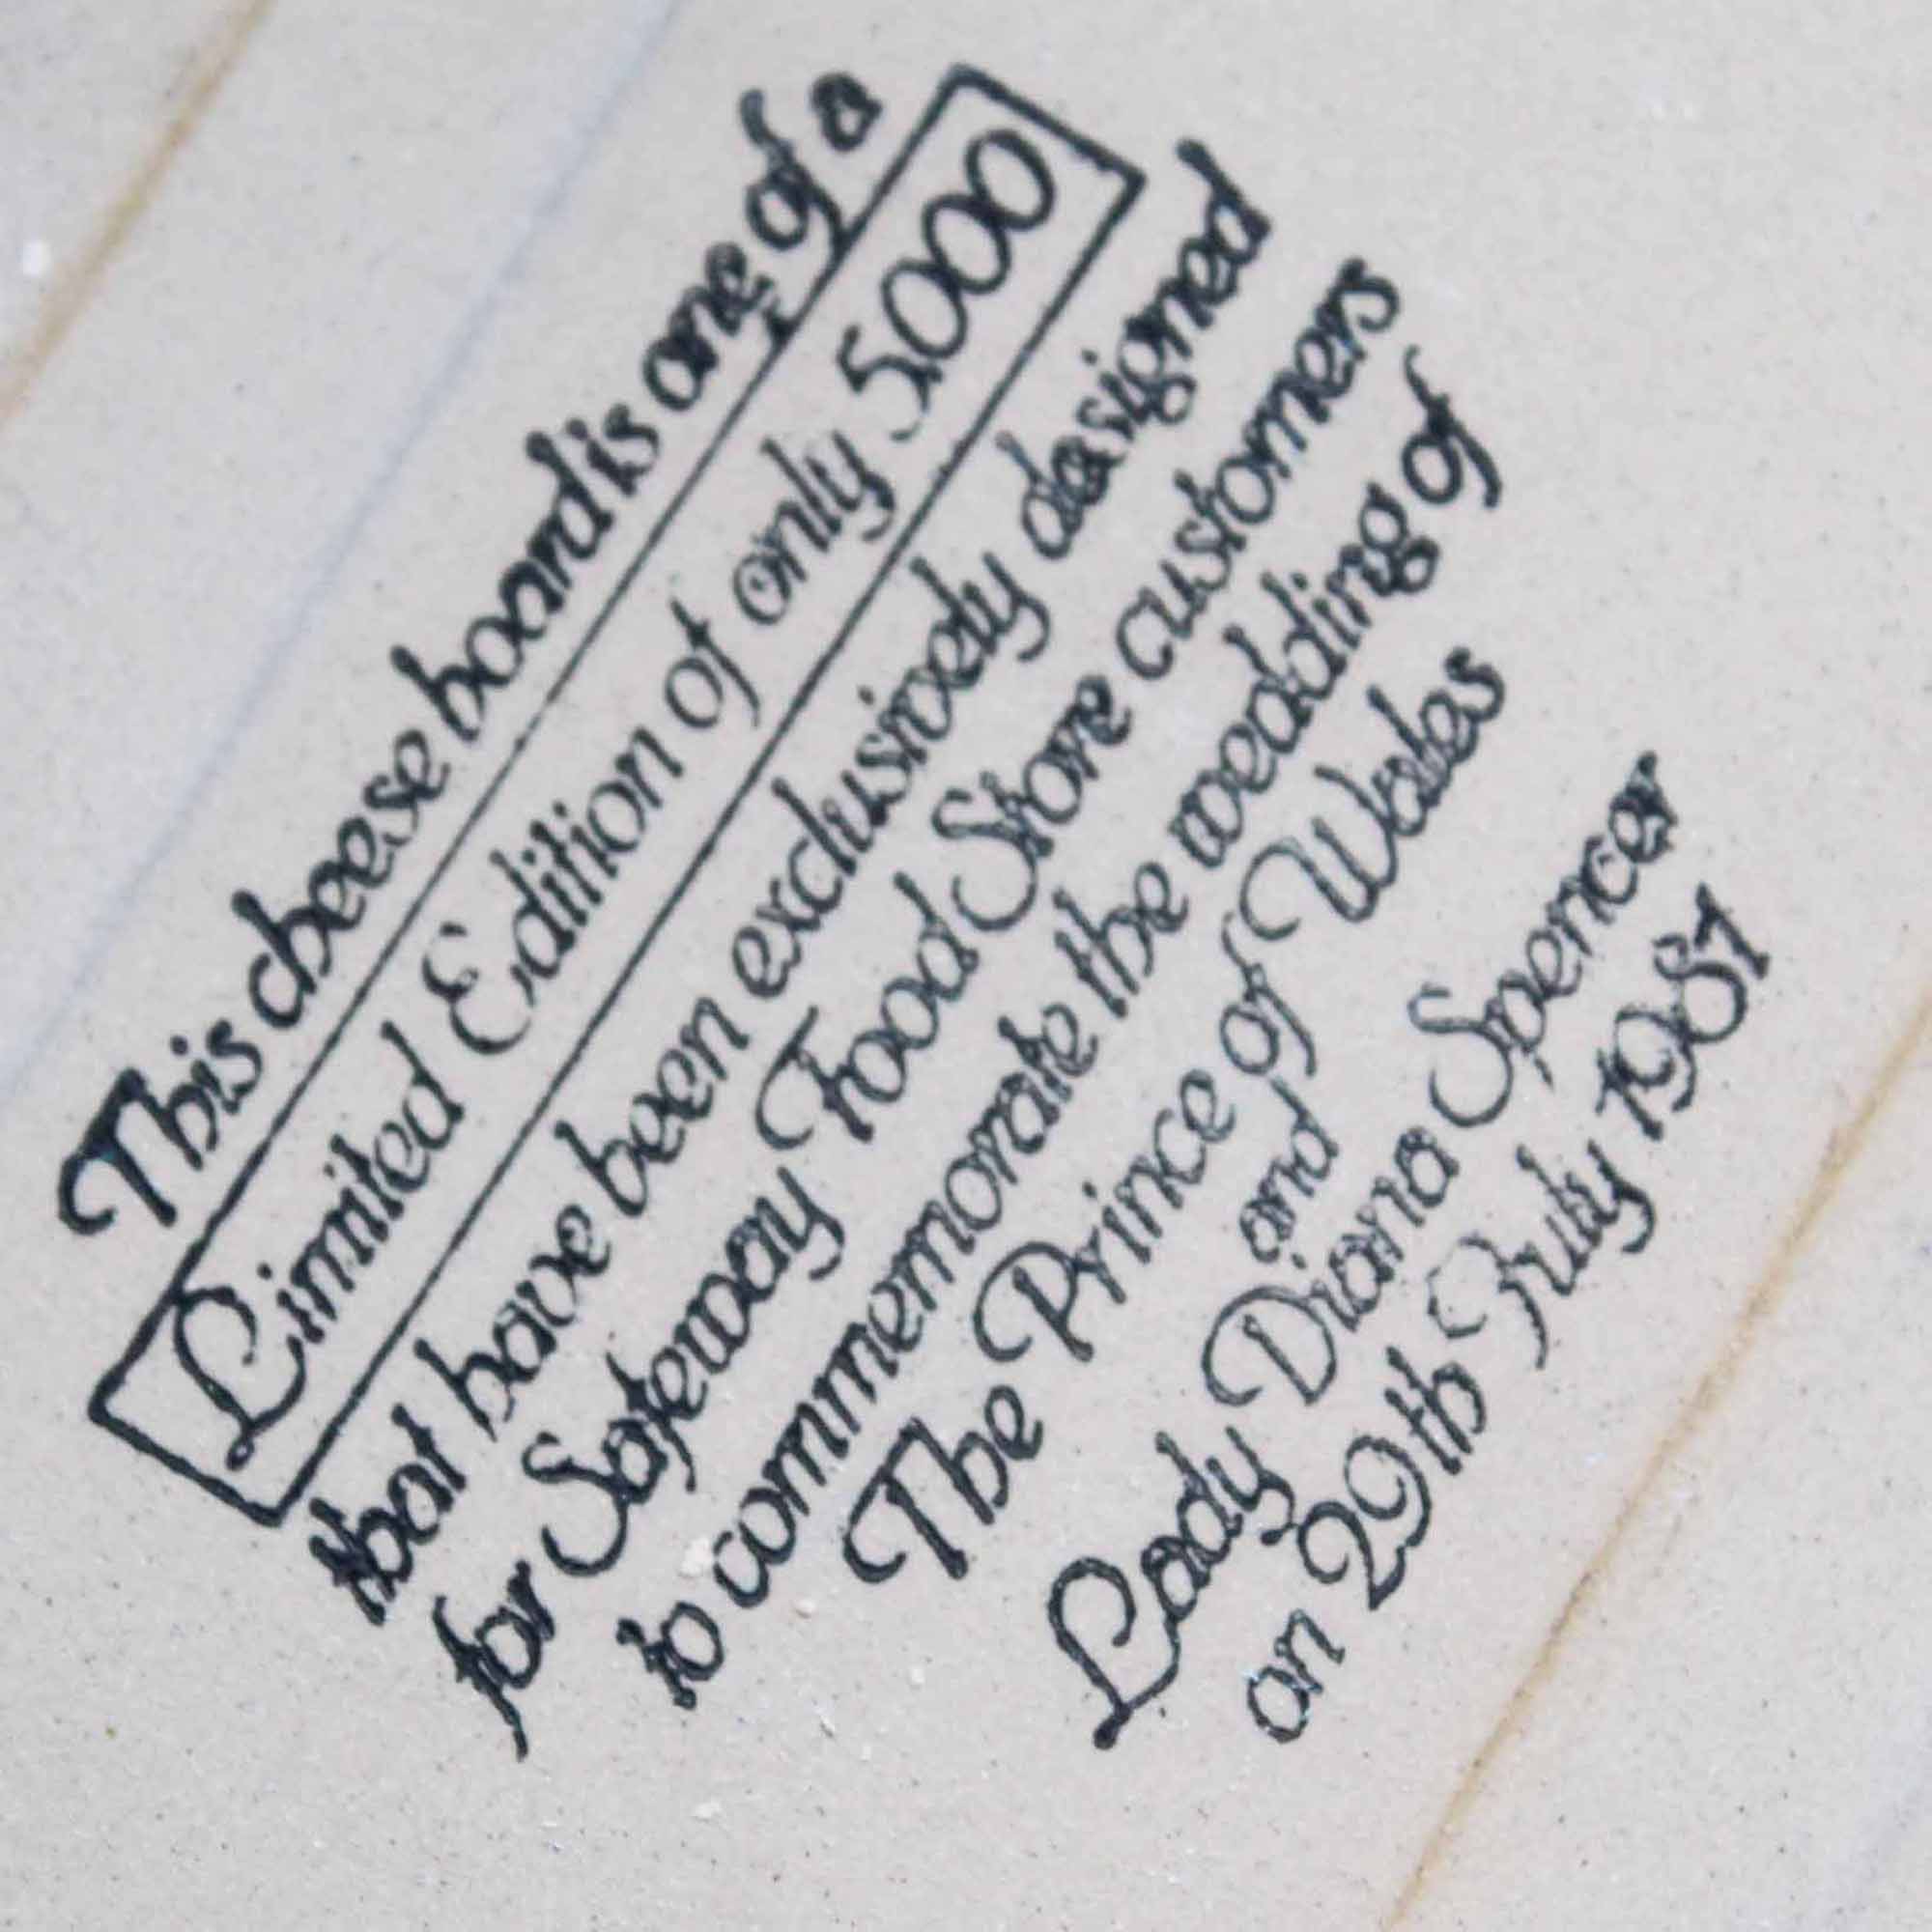 This cheese board is one of a
Limited Edition of only 5,000
that have been exclusively designed
for Safeway Food Store customers
to commemorate the wedding of
The Prince of Wales
and
Lady Diana Spencer
on 29th July 1981